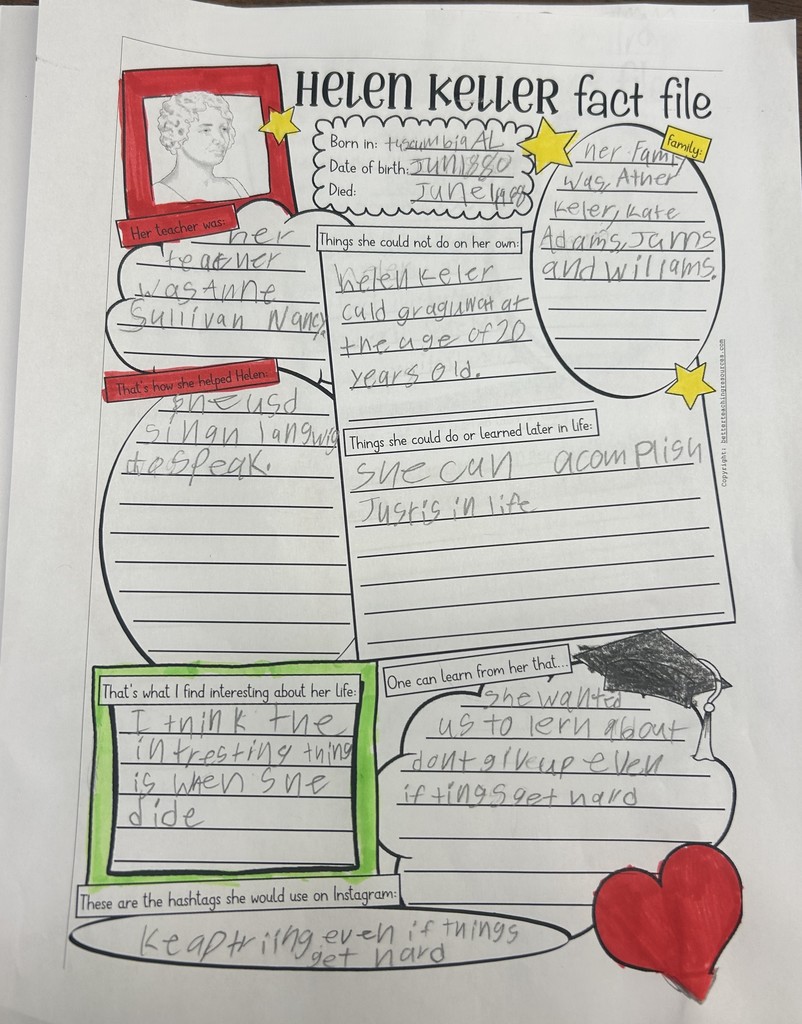 HELEN KELLER fact file
Born in: tuscumbia AL
Date of birth: JUN 1880
Died: June 1968
family:
her Famy
was, Ather
Keler, Kate
Adams, Jams
and williams.
Her teacher was:
her
teacher
was Anne
Sullivan Nancy.
Things she could not do on her own:
helen keler
culd graguwat at
the age of 20
years old.
That's how she helped Helen:
she usd
singn langwig
to speak.
Things she could do or learned later in life:
she can acomplish
Justis in life
Copyright: betterteachingresources.com
That's what I find interesting about her life:
I think the
intresting thing
is when she
dide
One can learn from her that...
she wanted
us to lern about
dont give up even
if tings get hard
These are the hashtags she would use on Instagram:
Keap triing even if things
get hard